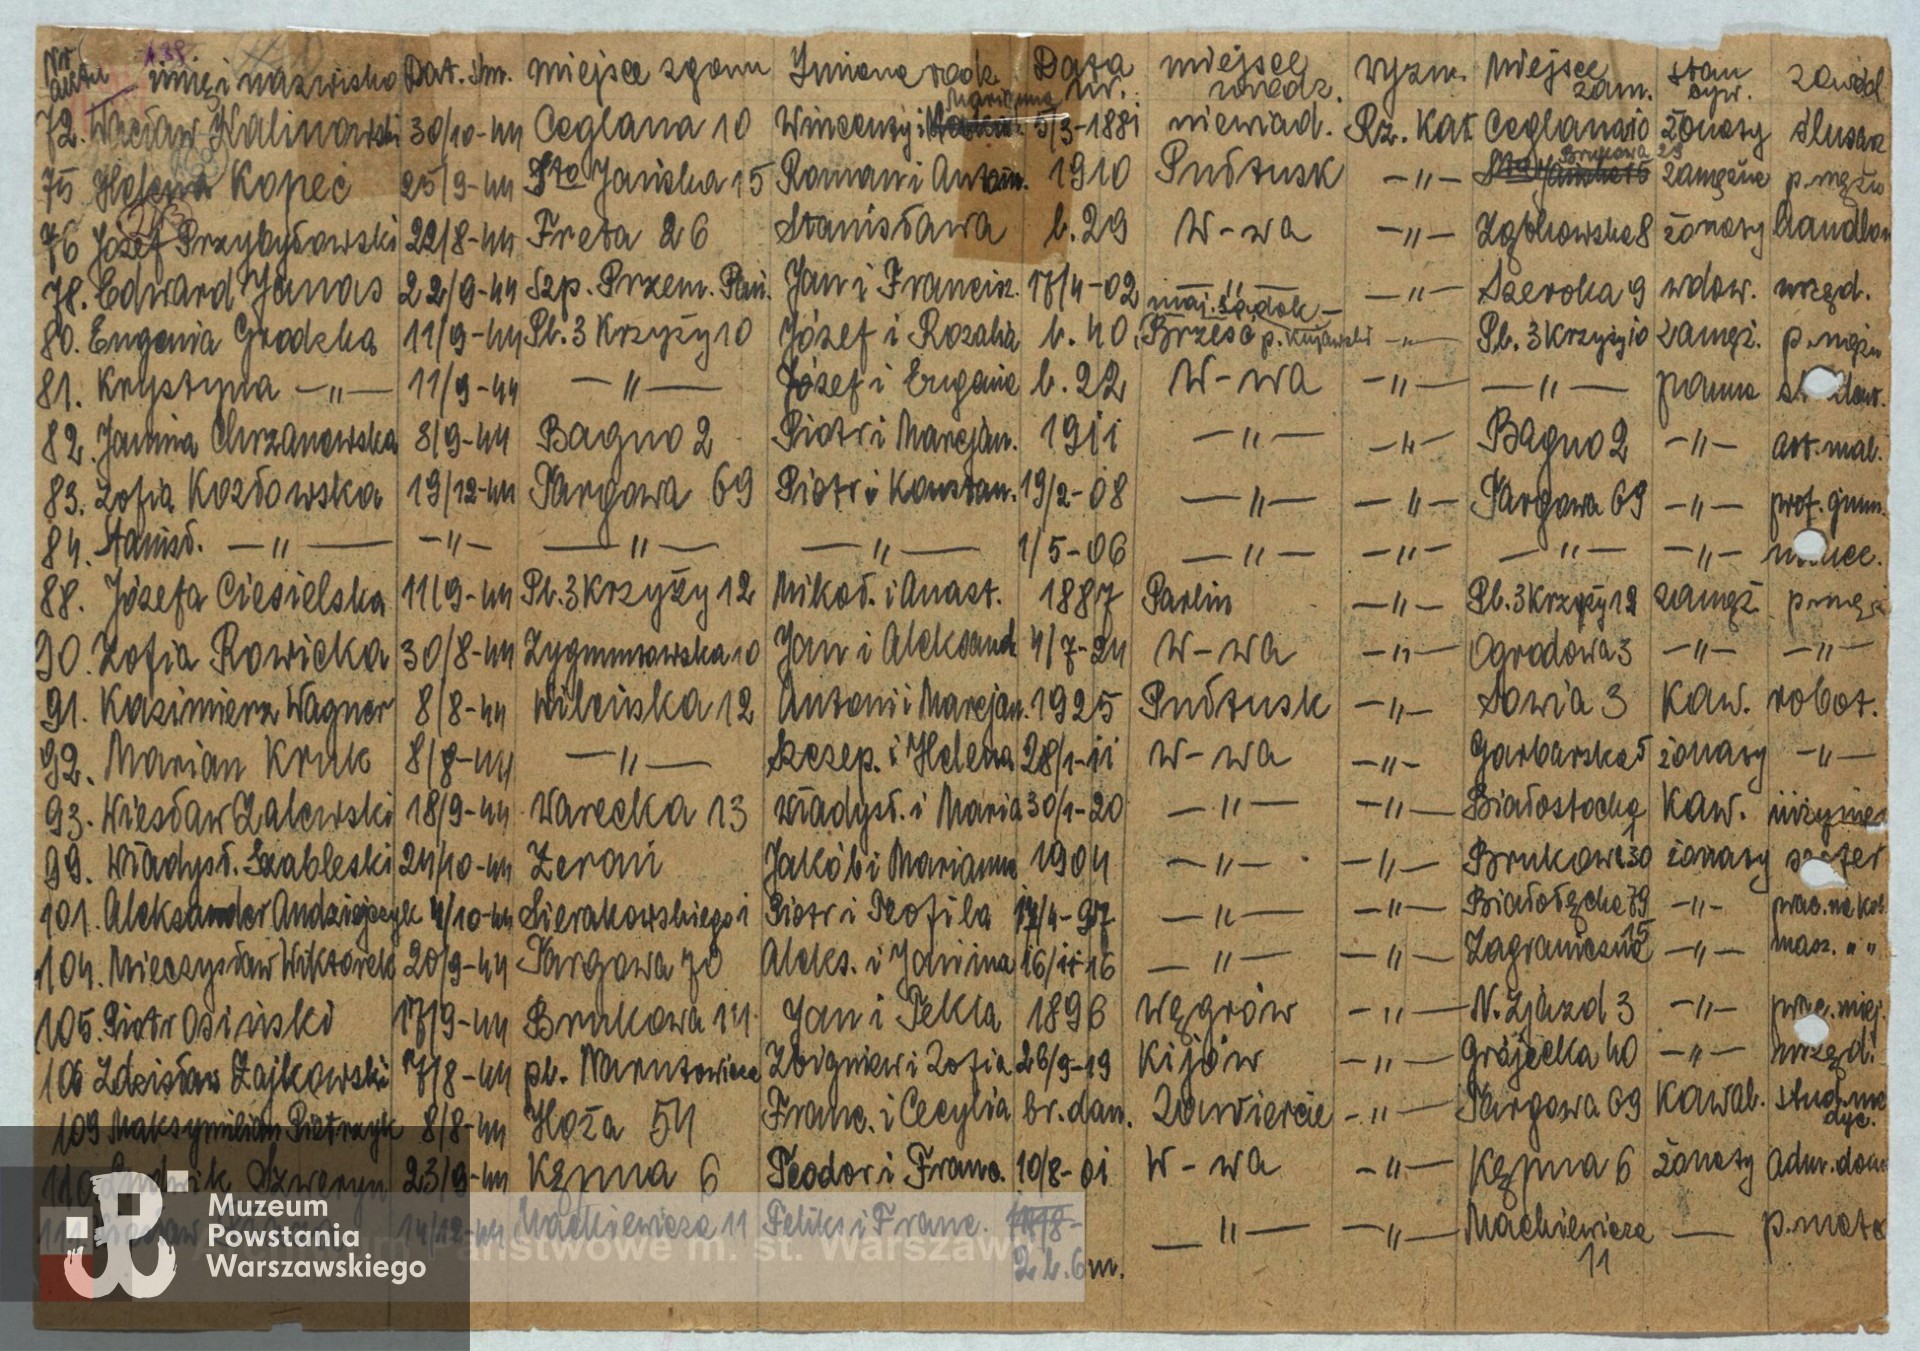 Nr aktu imię i nazwisko Dat. śm. miejsce zgonu Imiona rodz. Data ur. miejsce urodz. wyzn. Miejsce zam. stan cyw. zawód
72. Wacław Kalinowski 30/10-44 Ceglana 10 Wincenty i Marianna 5/3-1881 niewiad. Rz. Kat Ceglana 10 żonaty ślusarz
75 Helena Kopeć 25/9-44 Sto Jańska 15 Roman i Antonin. 1910 Pułtusk -"- Brukowa 29 zamężna p. mężu
76 Józef Przybyłowski 22/8-44 Freta 26 Stanisława l. 29 W-wa -"- Ząbkowska 8 żonaty handlow
78. Edward Janas 22/9-44 Szp. Przem. Pań. Jan i Francisz. 17/4-02 -"- -"- Szeroka 9 wdow. urzęd.
80. Eugenia Grodzka 11/9-44 Pl. 3 Krzyży 10 Józef i Rozalia l. 40 Brześć p. Kujawski -"- Pl. 3 Krzyży 10 zamęż. p. mężu
81. Krystyna -"- 11/9-44 -"- Józef i Eugenia l. 22 W-wa -"- -"- panna
82. Janina Chrzanowska 8/9-44 Bagno 2 Piotr i Marcjan. 1911 -"- -"- Bagno 2 -"- art. mal.
83. Zofia Kozłowska 19/12-44 Targowa 69 Piotr i Konstan. 19/2-08 -"- -"- Targowa 69 -"- prof. gimn.
84. Stanisł. -"- -"- -"- -"- 1/5-06 -"- -"- -"- -"-
88. Józefa Ciesielska 11/9-44 Pl. 3 Krzyży 12 Mikoł. i Anast. 1887 Parlin -"- Pl. 3 Krzyży 12 zamęż. p. męż
90. Zofia Rowicka 30/8-44 Zygmuntowska 10 Jan i Aleksand. 4/7-24 W-wa -"- Ogrodowa 3 -"- -"-
91. Kazimierz Wagner 8/8-44 Wileńska 12 Antoni i Marcjan. 1925 Pułtusk -"- Sowia 3 Kaw. robot.
92. Marian Kruk 8/8-44 -"- Szczep. i Helena 28/1-11 W-wa -"- Garbarska 5 żonaty -"-
93. Wiesław Zalewski 18/9-44 Warecka 13 Władysł. i Maria 30/1-20 -"- -"- Białostocka Kaw. inżynier
99. Władysł. Szableski 24/10-44 Żerań Jakób i Marianna 1904 -"- -"- Brukowa 30 żonaty szofer
101. Aleksander Andziejczyk 4/10-44 Sierakowskiego 1 Piotr i Teofila 17/4-97 -"- -"- Białołęcka 79 -"- prac. na kol.
104. Mieczysław Wiktorek 20/9-44 Targowa 70 Aleks. i Janina 16/11-16 -"- -"- Zagraniczna 15 -"- masz. " "
105. Piotr Osiński 17/9-44 Brukowa 14. Jan i Tekla 1896 Węgrów -"- N. Zjazd 3 -"- prac. miej.
106 Zdzisław Zajkowski 7/8-44 pl. Narutowicza Zbigniew i Zofia 26/9-19 Kijów -"- Grójecka 40 -"- urzęd.
109 Maksymilian Pietrzyk 8/8-44 Hoża 54 Franc. i Cecylia br. dan. Zawiercie -"- Targowa 69 Kawal. stud. medyc.
110 23/9-44 Kępna 6 Teodor i Franc. 10/8-01 W-wa -"- Kępna 6 żonaty adm. dom
14/12-44 Mackiewicza 11 Feliks i Franc. 2 l. 6 m. -"- -"- Mackiewicza 11 — p. mat
Muzeum
Powstania
Warszawskiego